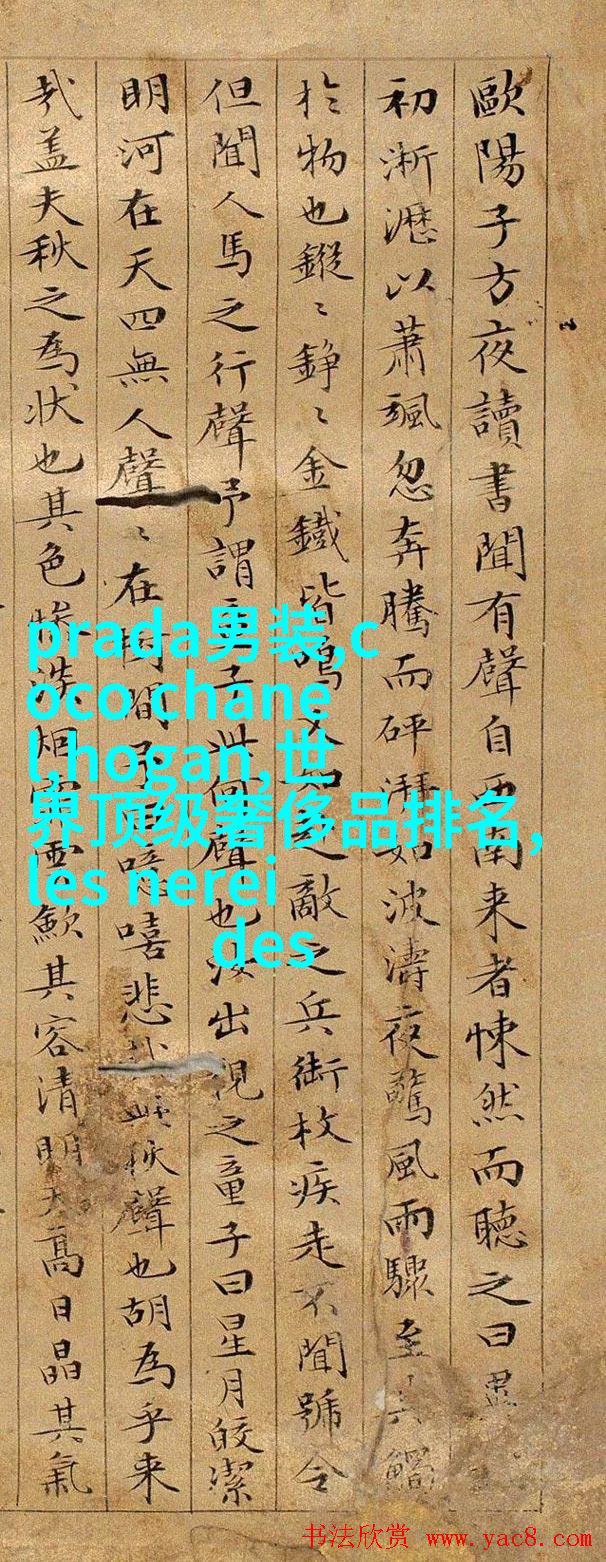 歐陽子方夜讀書聞有聲自西南来者悚然而聽之曰
初淅瀝以蕭颯忽奔騰而砰湃如波濤夜驚風雨驟至其觸
於物也鏦〻錚〻金鐵皆鳴又如之敵之兵銜枚疾走不聞號令
但聞人馬之行聲予謂童子此何聲也汝出視之童子曰星月皎潔
明河在天四無人聲〻在樹間予曰噫嘻悲哉此秋聲也胡為乎来
哉盖夫秋之為狀也其色慘淡烟霏雲歛其容清明天髙日晶其氣
prada男装,c
oco chane
l,hogan,世
界顶级奢侈品排名,
les nerei
des
书法欣赏 www.yac8.com